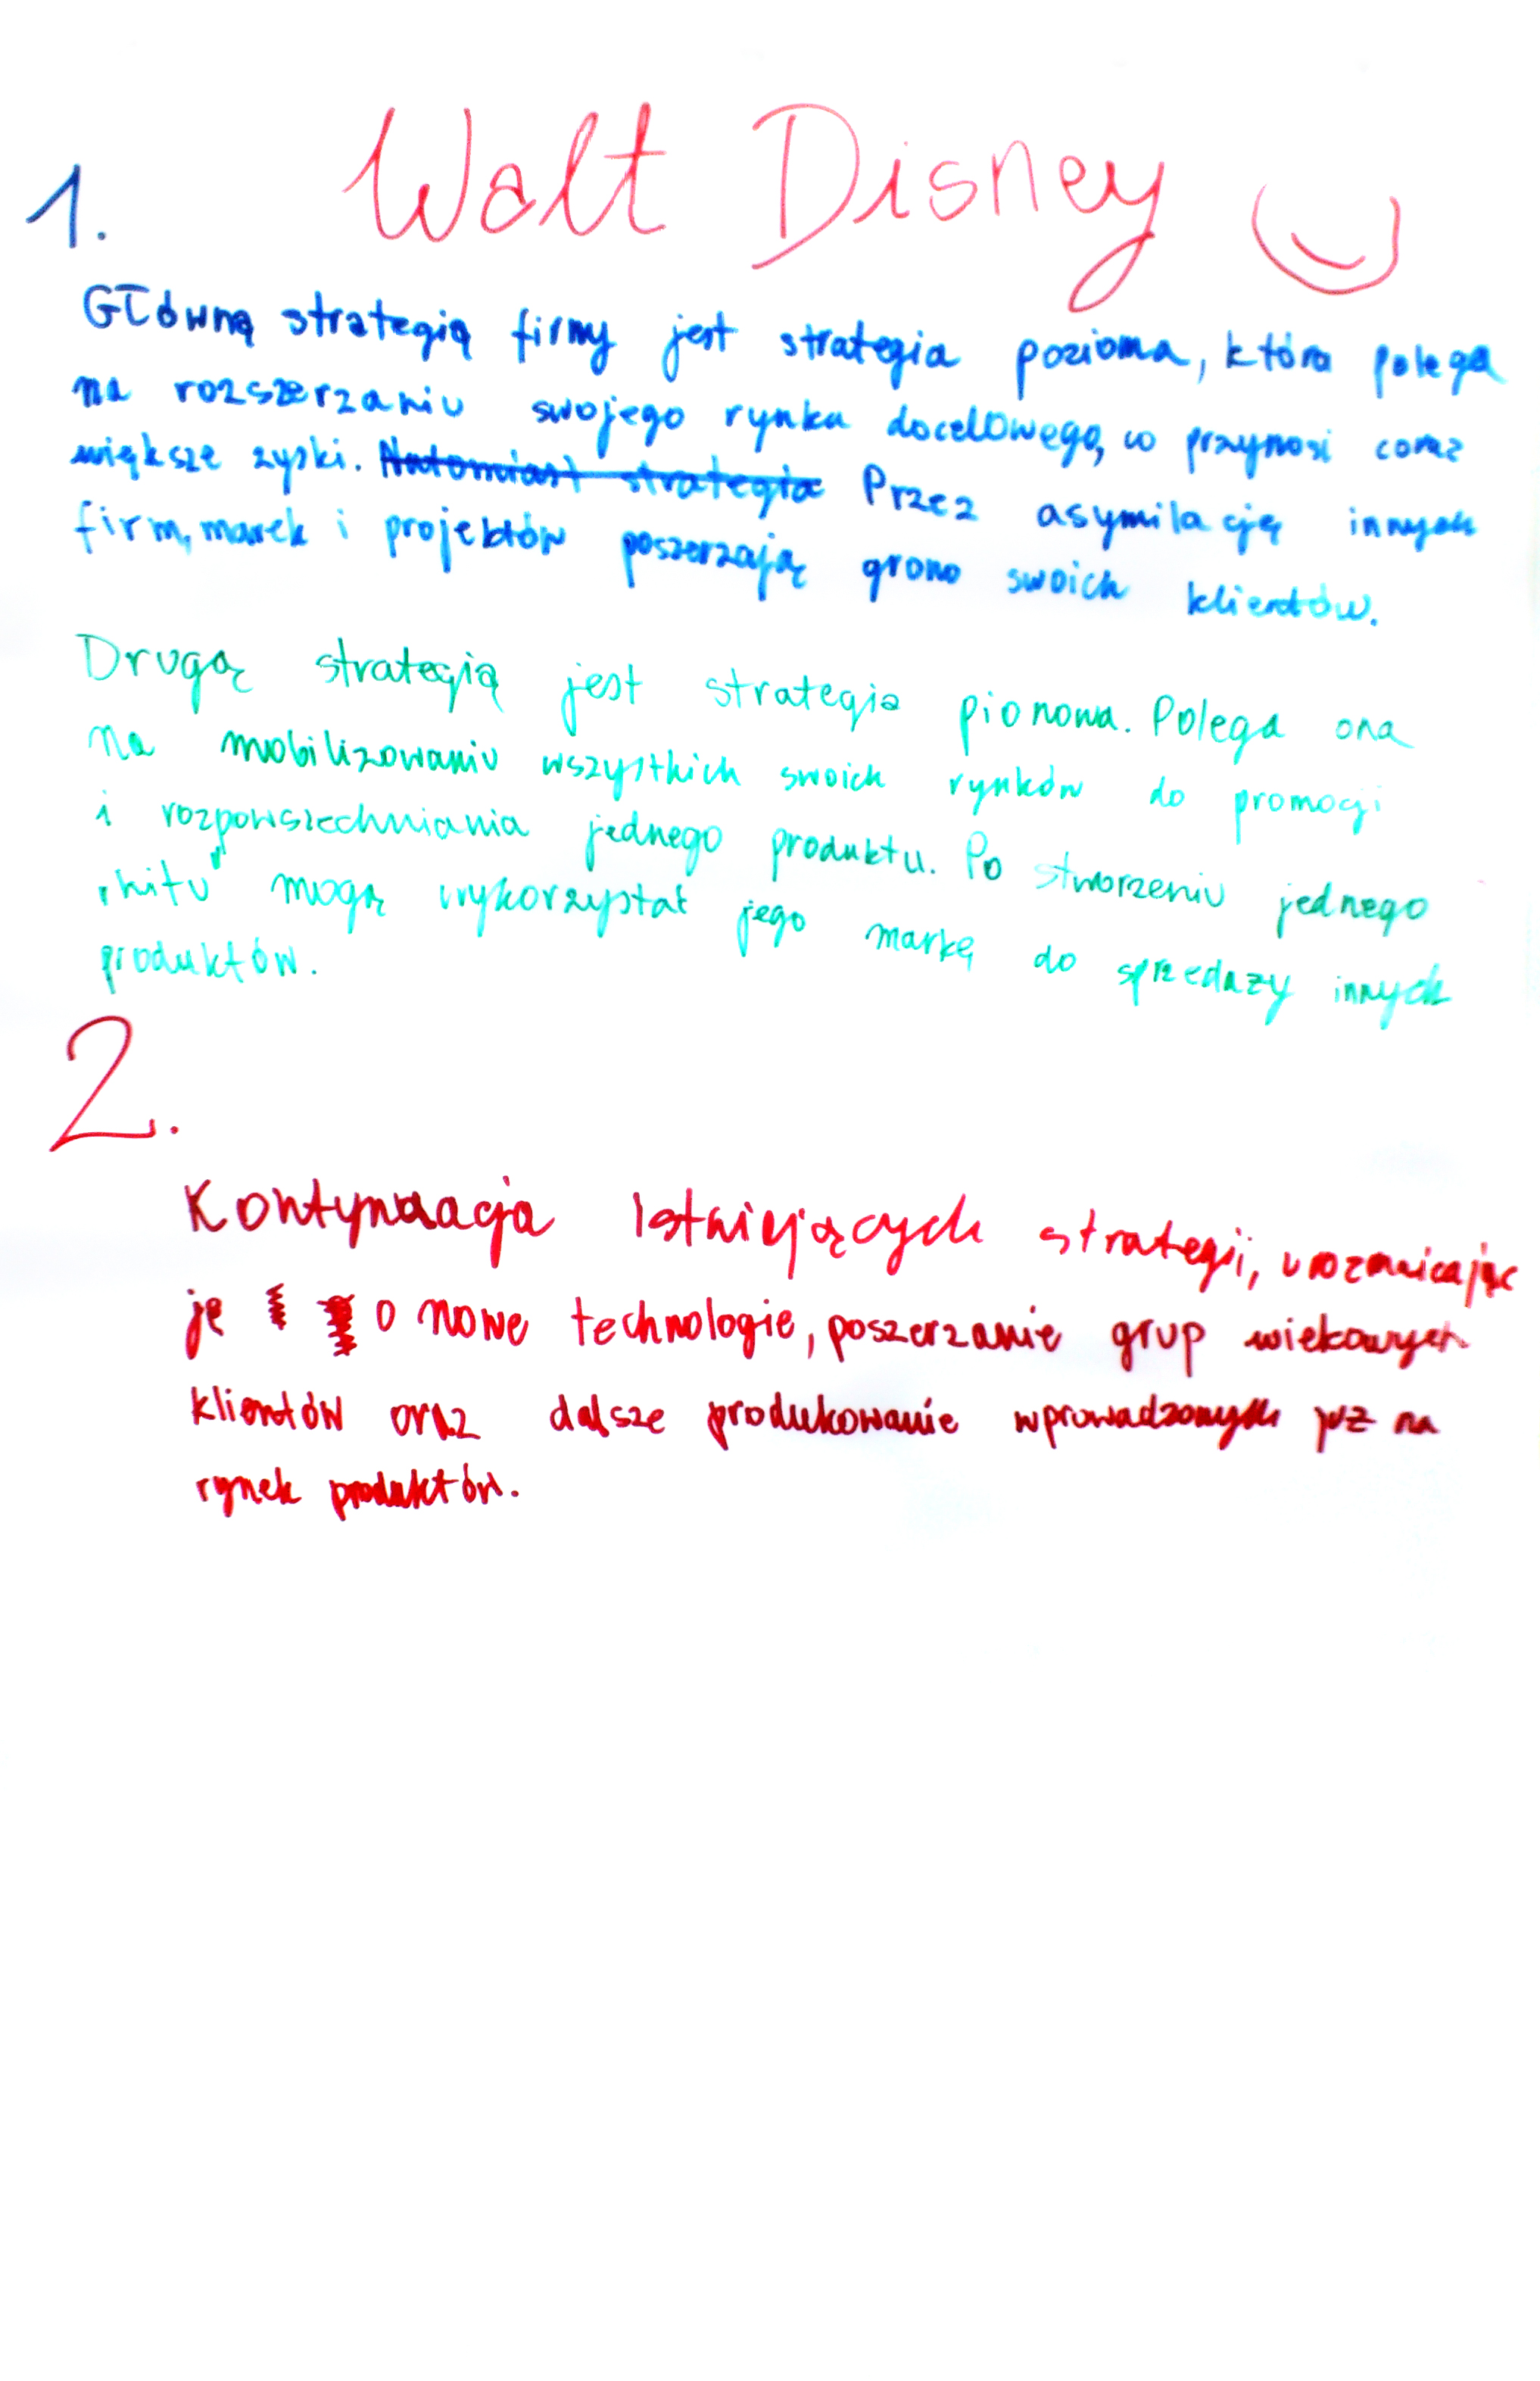 Walt Disney
1.
Główną strategią firmy jest strategia pozioma, która polega
na rozszerzaniu swojego rynku docelowego, co przynosi coraz
większe zyski. Natomiast strategia Przez asymilację innych
firm, marek i projektów poszerzają grono swoich klientów.
Drugą strategią jest strategia pionowa. Polega ona
na mobilizowaniu wszystkich swoich rynków do promocji
i rozpowszechniania jednego produktu. Po stworzeniu jednego
„hitu" mogą wykorzystać jego markę do sprzedaży innych
produktów.
2.
Kontynuacja istniejących strategii, urozmaicając
je o nowe technologie, poszerzanie grup wiekowych
klientów oraz dalsze produkowanie wprowadzonych już na
rynek produktów.